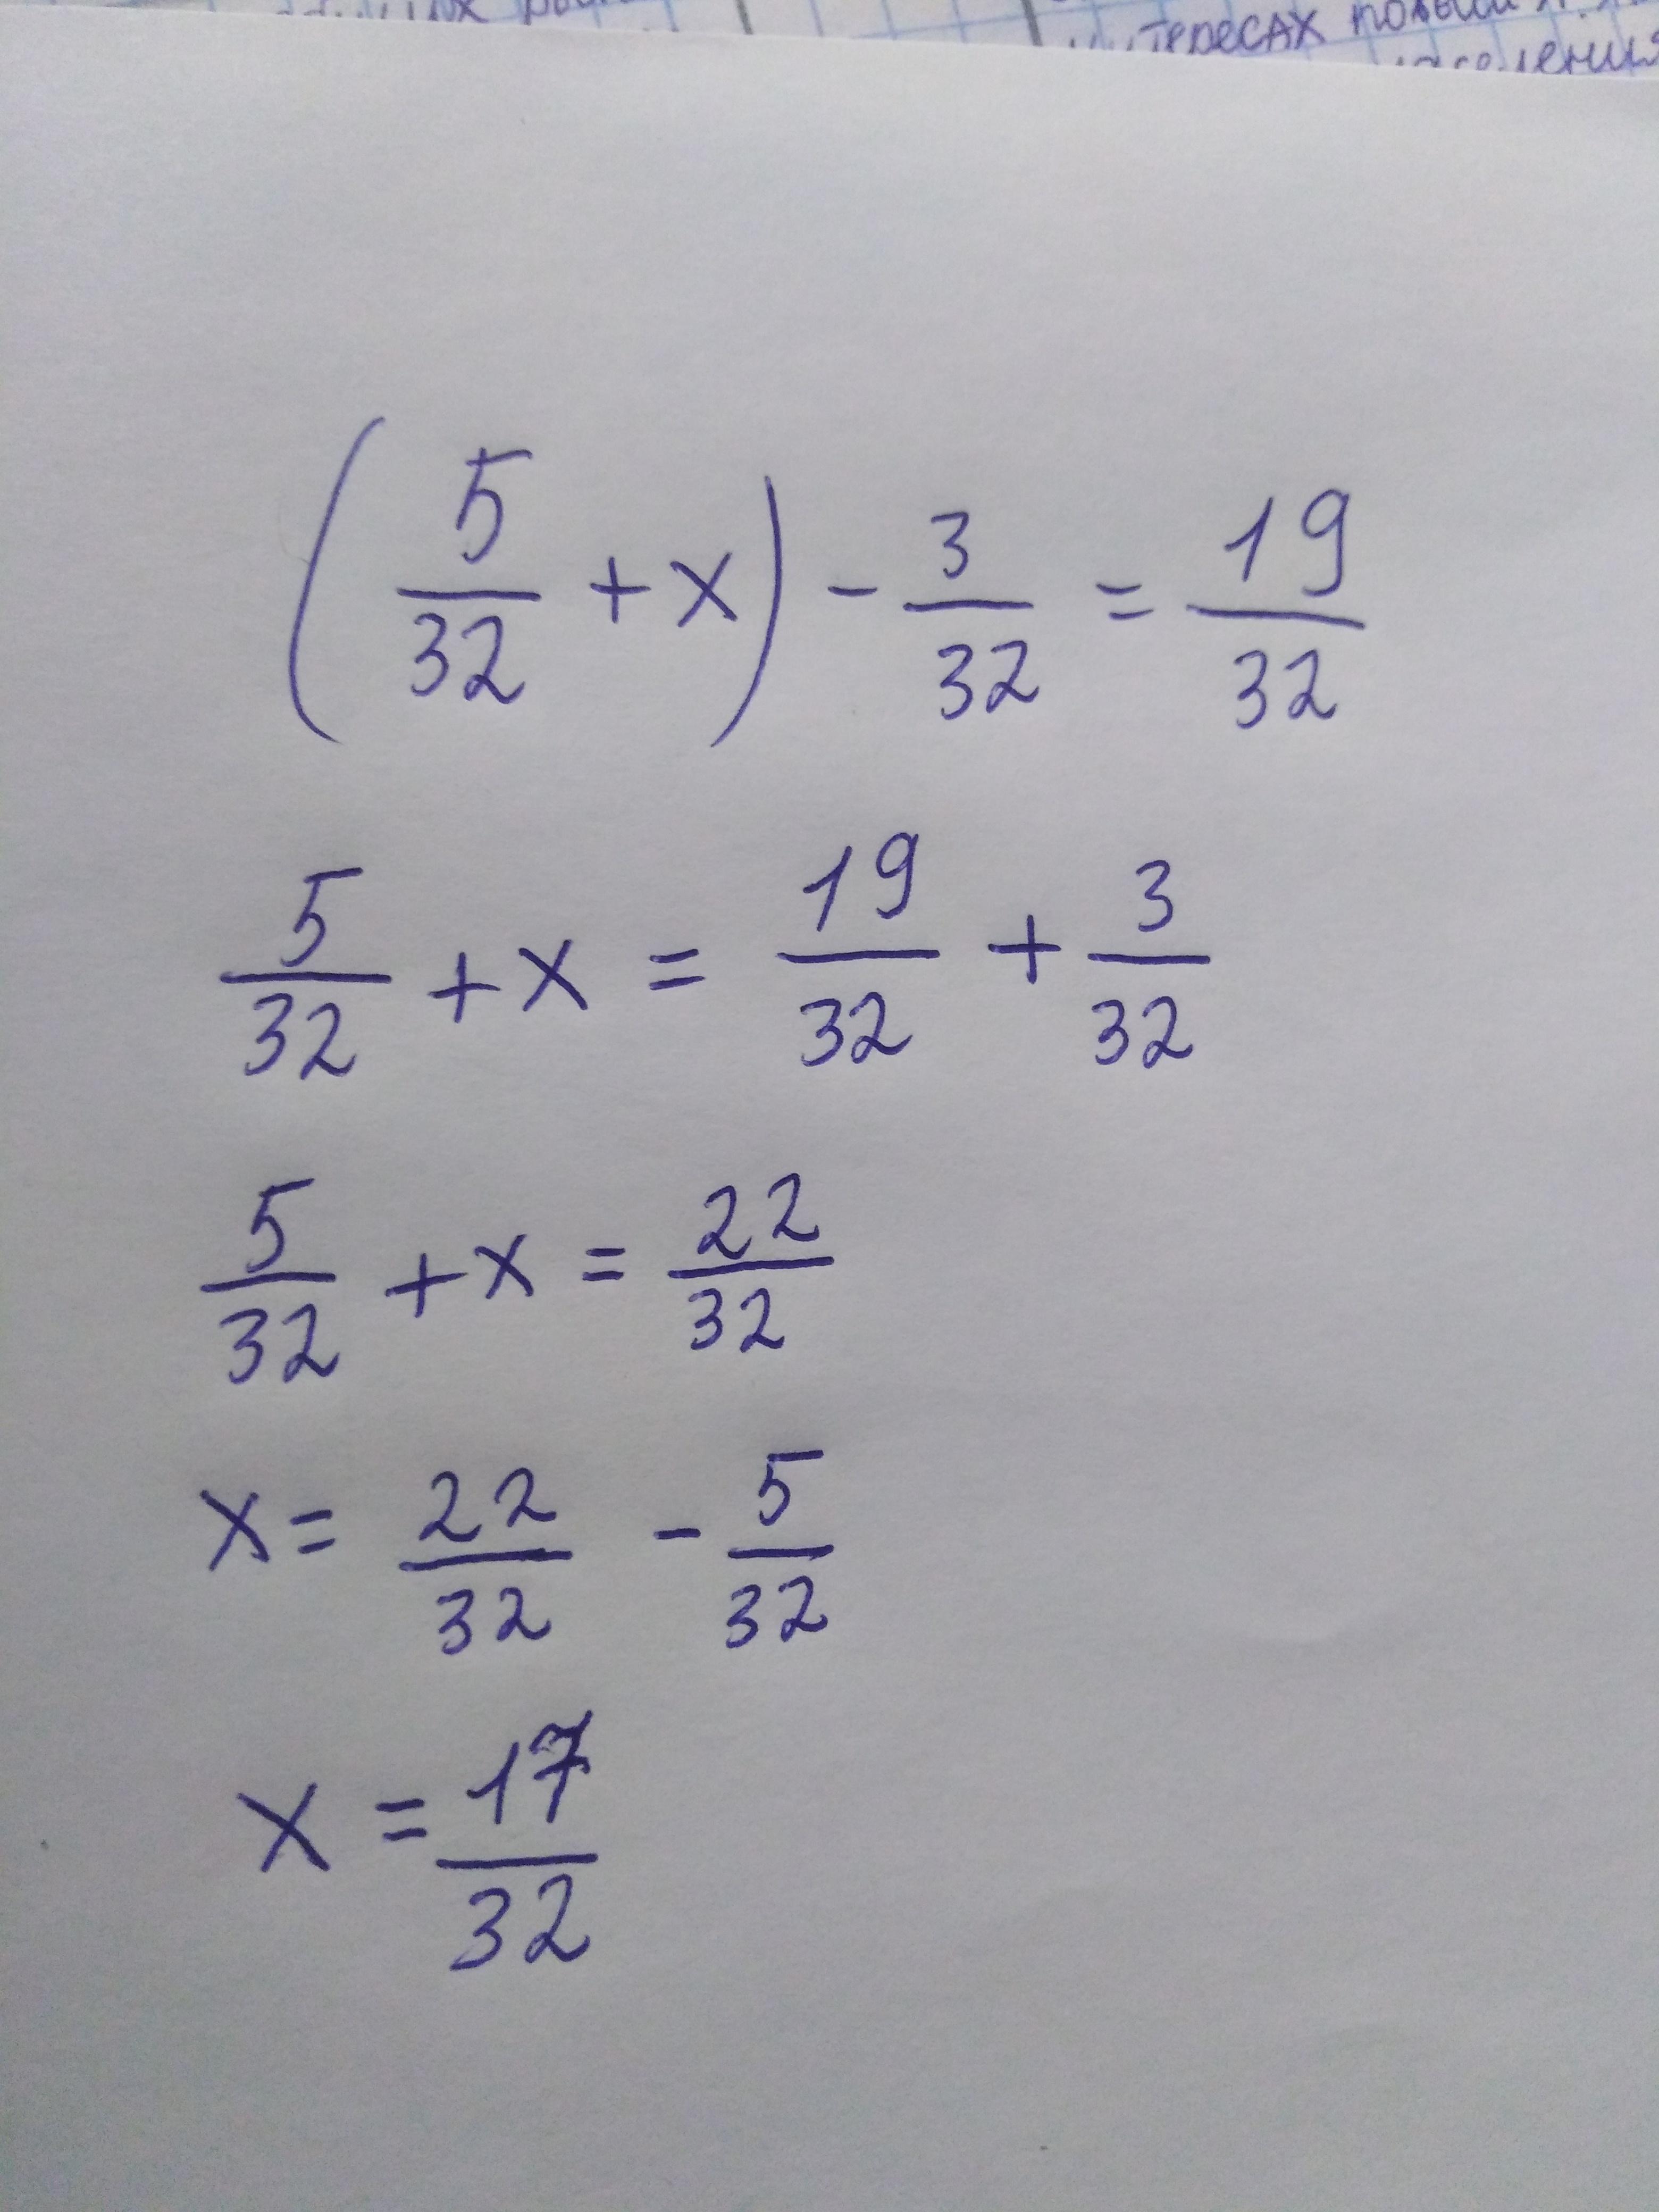 интересах
(5/32 + x) - 3/32 = 19/32
5/32 + x = 19/32 + 3/32
5/32 + x = 22/32
x = 22/32 - 5/32
x = 17/32